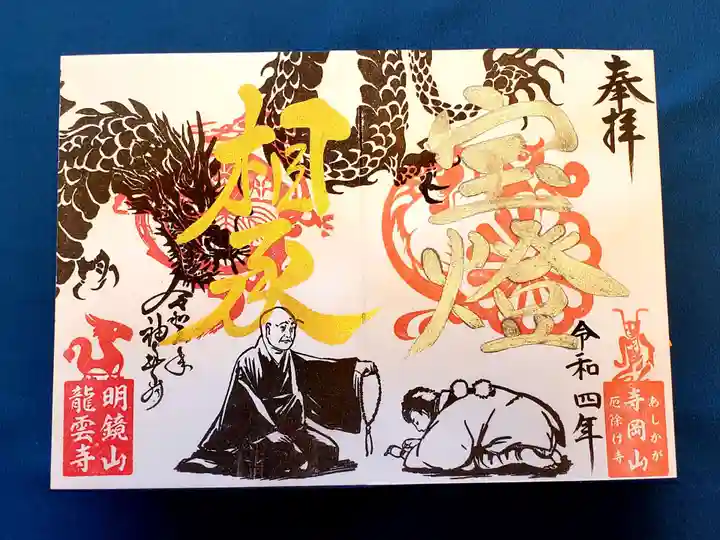 奉拝
宝燈
令和四年
あしかが
寺岡山
厄除け寺
相承
明鏡山
龍雲寺